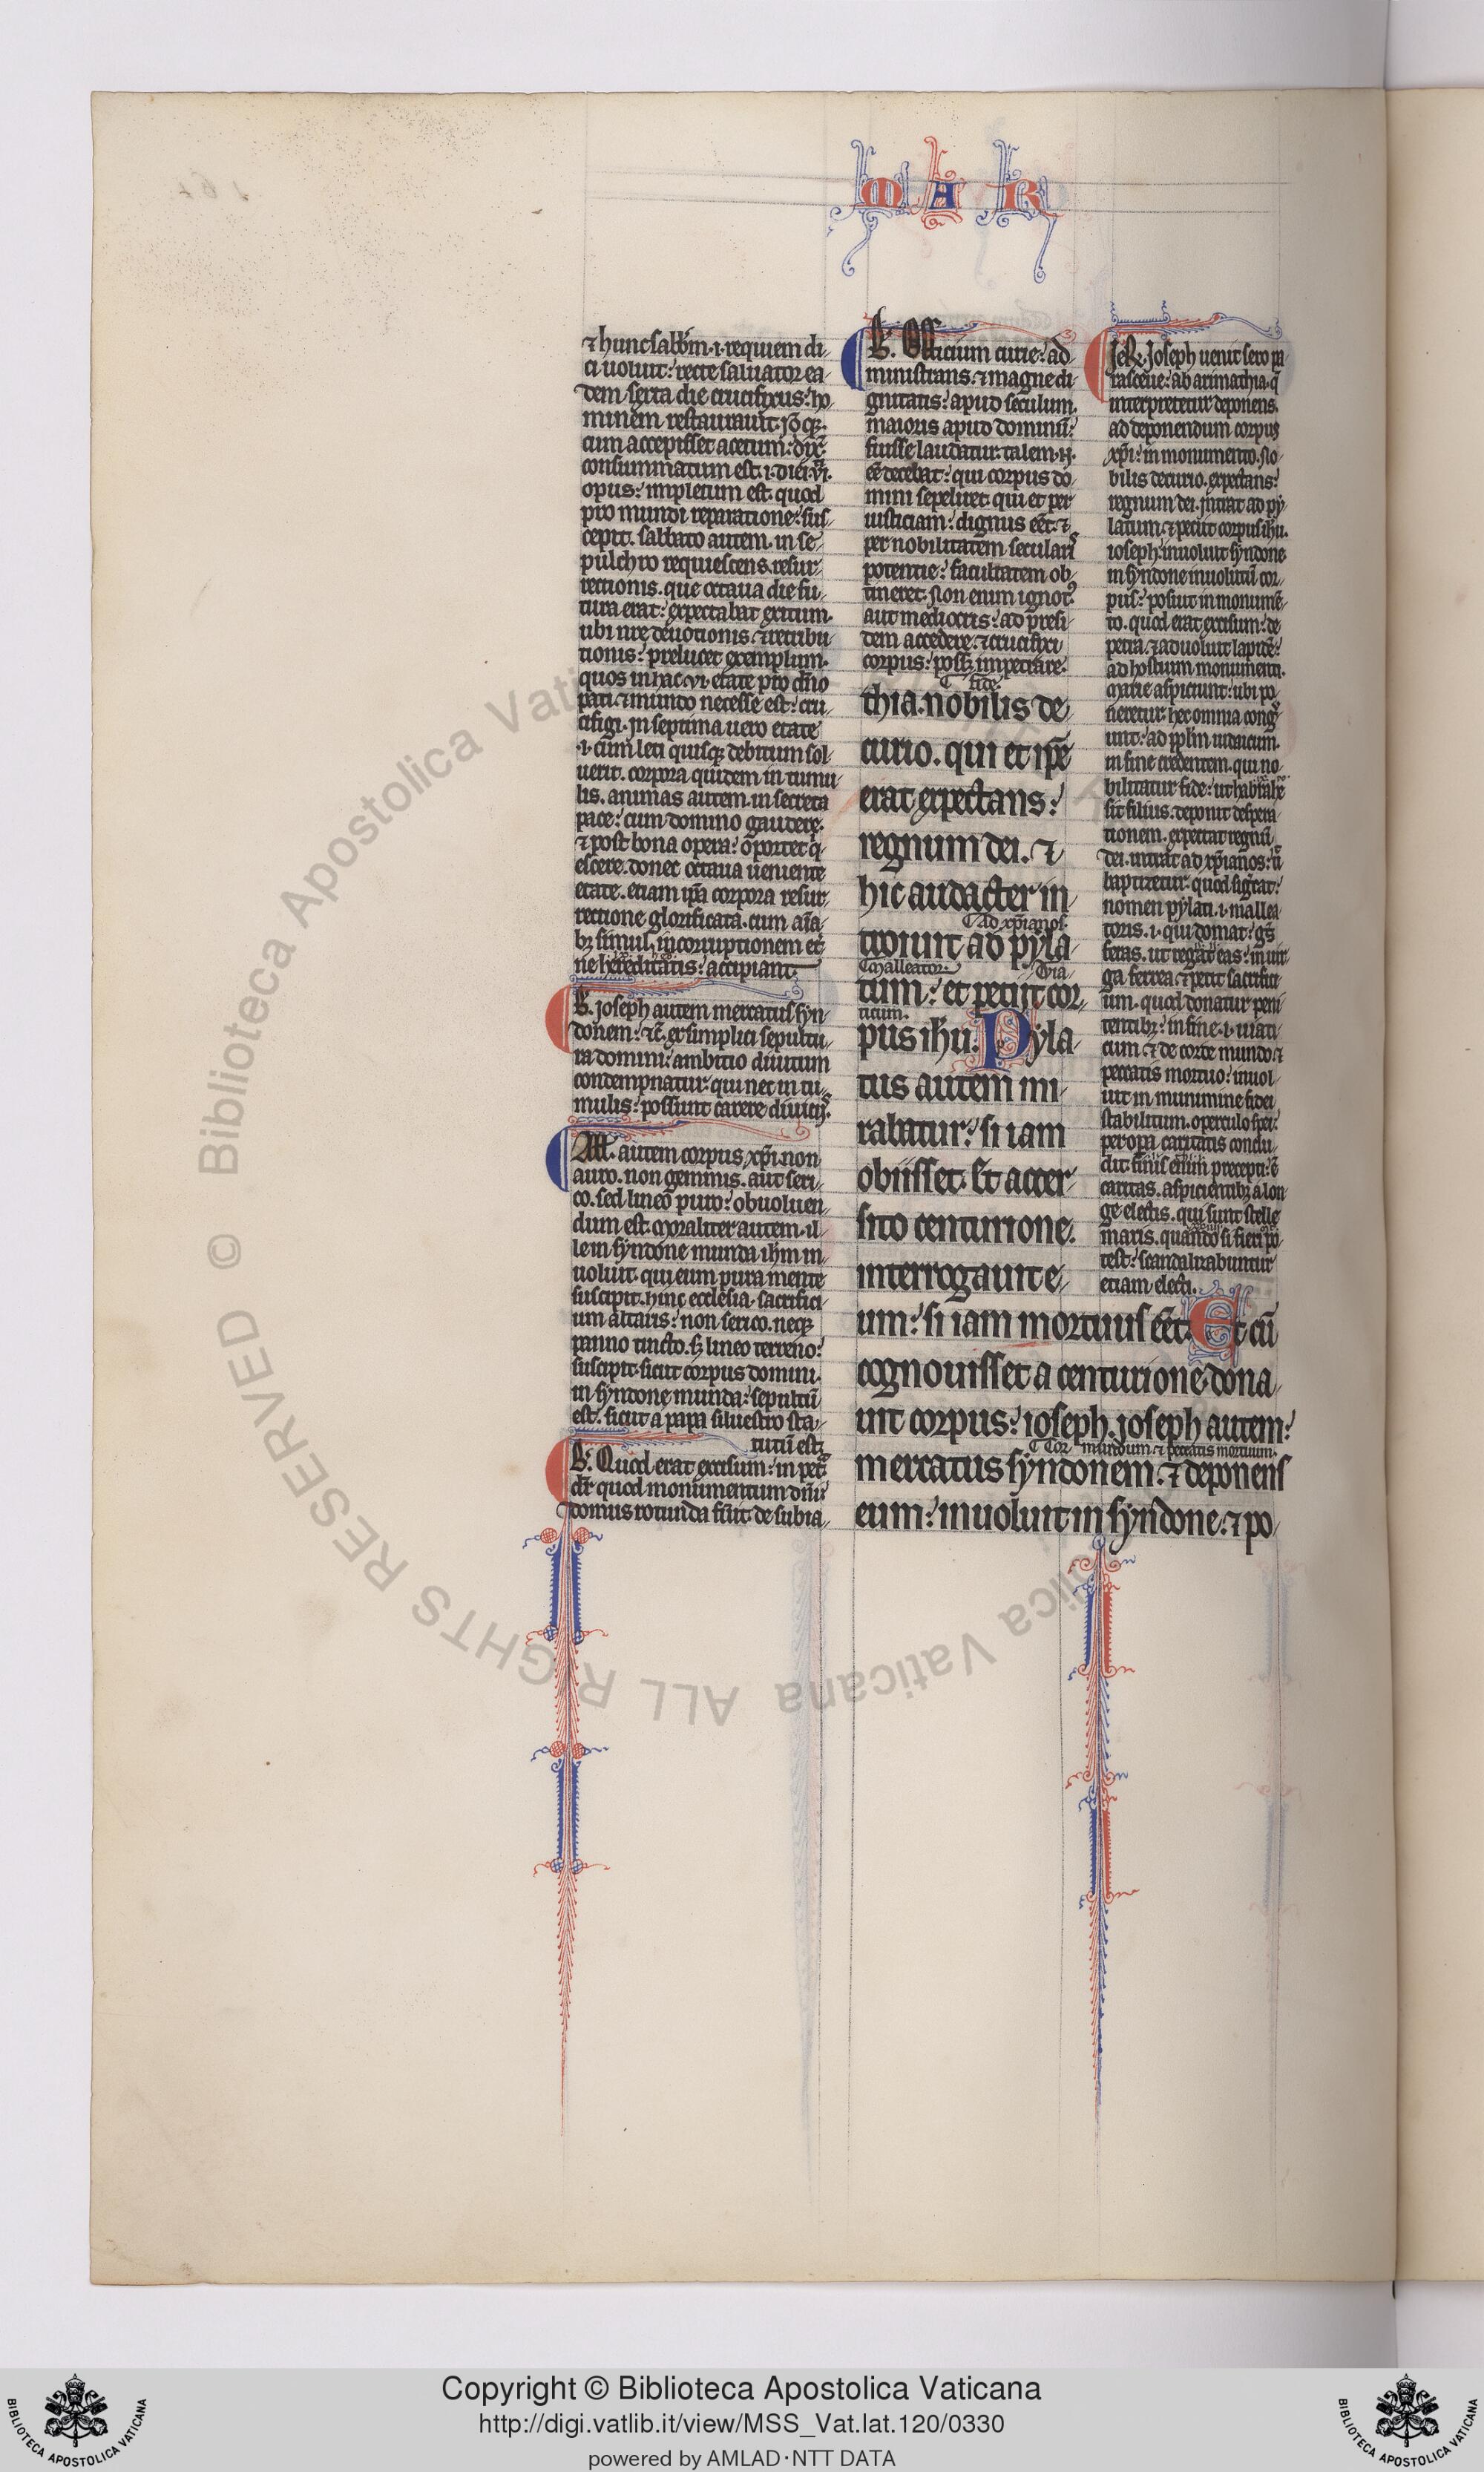 M A R
⁊ hunc sabbm .i. requiem di
ci uoluit: recte saluator ea
dem sexta die crucifixus: ho
minem restaurauit. Jõ qꝫ
cum accepisset acetum: dix̃
consummatum est. i. diei .vi.
opus: impletum est quod
pro mundi reparatione: sus
cepit. sabbato autem in se
pulchro requiescens. resur
rectionis. que octaua die fu
tura erat: expectabat exitum.
ubi nr̃e deuotionis ⁊ retribu
tionis: prelucet exemplum.
quos in hac .vi. etate pro dño
pati. ⁊ mundo necesse est: cru
cifigi. Jn septima uero etate
.i. cum leti quisqꝫ debitum sol
uerit. corpora quidem in tumu
lis. animas autem in secreta
pace: cum domino gaudere.
⁊ post bona opera: oportet q̃
escere. donec octaua ueniente
etate. etiam ip̃a corpora resur
rectione glorificata. cum aĩa
bꝫ simul incorruptionem et̃
ne hereditatis: accipiant.
B. Joseph autem mercatus syn
donem: ⁊c̃. Ex simplici sepultu
ra domini: ambitio diuitum
contempnatur. qui nec in tu
mulis: possunt carere diuicijs.
Aɫɫ. autem corpus xp̃i. non
auro. non gemmis. aut seri
co. sed lineo puro: obuoluen
dum est. Moraliter autem. il
le in syndone munda ihm in
uoluit. qui eum pura mente
suscipit. hinc ecclesia. sacrifici
um altaris: non serico. neqꝫ
panno tincto. sꝫ lineo terreno:
suscipit. sicut corpus domini.
in syndone munda: sepultũ
est. sicut a papa siluestro sta
tutũ est.
B. Quod erat excisum: in pet̃
dr̃ quod monumentum dñi
domus rotunda fuit de subia
B. Officium curie: ad
ministrans. ⁊ magne di
gnitatis: apud seculum.
maioris apud dominũ:
fuisse laudatur. talem .n.
eẽ decebat: qui corpus do
mini sepeliret. qui et per
iusticiam: dignus eẽt. ⁊
per nobilitatem secularis
potentie: facultatem ob
tineret. Non enim ignotꝰ
aut mediocris: ad presi
dem accedere. ⁊ crucifixi
corpus: possꝫ impetrare.
fide.
thia. nobilis de
curio. qui et ip̃e
erat expectans:
regnum dei. ⁊
hic audacter in
Ad xp̃ianos.
troiuit ad pyla
Malleator. Via
tum: et petijt cor
ticum.
pus ihu. Pyla
tus autem mi
rabatur: si iam
obiisset. Et accer
sito centurione.
interrogauit e
um: si iam mortuus eẽt. Et cũ
cognouisset a centurione. dona
uit corpus: ioseph. Joseph autem:
Cor mundum ⁊ peccatis mortuum.
mercatus syndonem. ⁊ deponens
eum: inuoluit in syndone. ⁊ po
JeR. Joseph uenit sero pa
rasceue: ab arimathia. q̃
interpretetur deponens.
ad deponendum corpus
xp̃i: in monumento. No
bilis decurio. expectans:
regnum dei. Jntrat ad py
latum. ⁊ petiit corpus ihu.
ioseph inuoluit syndone
in syndone inuolutũ cor
pus: posuit in monumẽ
to. quod erat excisum: de
petra. ⁊ aduoluit lapidẽ:
ad hostium monumenti.
Marie aspiciunt: ubi po
neretur. hec omnia cong̃
unt: ad pplm iudaicum.
in fine credentem. qui no
bilitatur fide: ut habrahe
sit filius. deponit despera
tionem. expectat regnũ
dei. intrat ad xp̃ianos: ut
baptizetur. quod sig̃cat:
nomen pylati. i. mallea
toris. i. qui domat: g̃s
feras. ut regat eas: in uir
ga ferrea. ⁊ petit sacrifici
um. quod donatur peni
tentibꝫ: in fine. i. uiati
cum. ⁊ de corde mundo. ⁊
peccatis mortuo: inuol
uit in munimine fidei
stabilitum. operculo spei:
per opa caritatis conclu
dit. finis enim precepti: ẽ
caritas. aspicientibꝫ a lon
ge electis. qui sunt stelle
maris. quando si fieri po
test: scandalizabuntur
etiam electi.
Copyright © Biblioteca Apostolica Vaticana
http://digi.vatlib.it/view/MSS_Vat.lat.120/0330
powered by AMLAD·NTT DATA
BIBLIOTECA APOSTOLICA VATICANA
BIBLIOTECA APOSTOLICA VATICANA
© Biblioteca Apostolica Vaticana ALL RIGHTS RESERVED